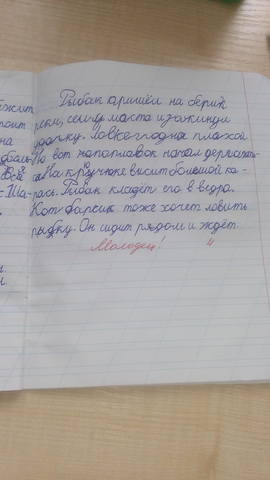 Рыбак пришёл на берик
реки, сел у моста и закинул
удочку. ловсегодня плахой
Но вот напоплавок начал дергат-
На кручюке висит большой ка-
рась. Рыбак кладёт его в ведро.
Кот барсик тоже хочет ловить
рыбку. Он сидит рядом и ждёт.
Молодец!